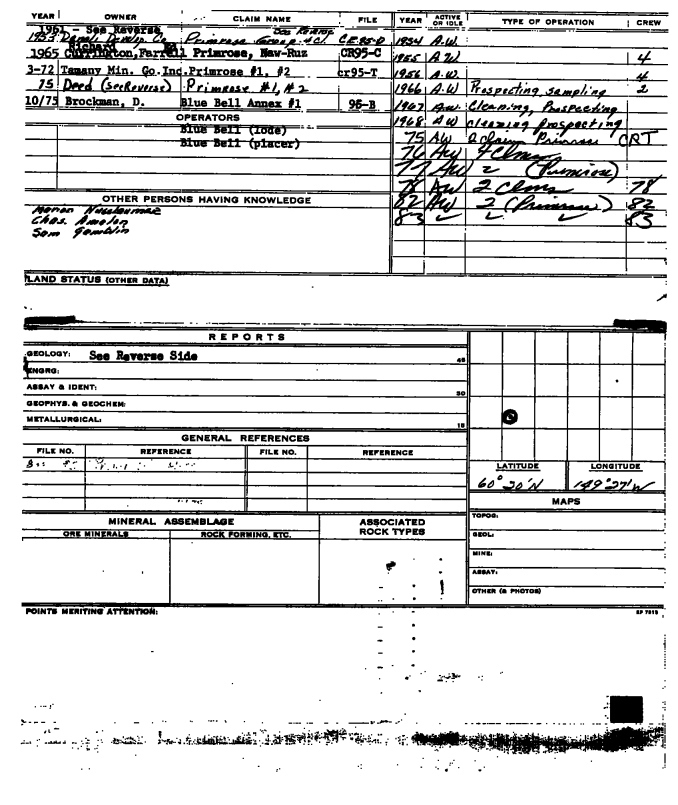 YEAR OWNER CLAIM NAME FILE YEAR ACTIVE OR IDLE TYPE OF OPERATION CREW
See Reverse
1953 Develop. Co. Primrose Group 4 Cl. CE95-D 1954 A.W.
Richard
1965 Farrell Primrose, Naw-Ruz CR95-C 1955 A.W. 4
3-72 Tamany Min. Co. Inc. Primrose #1, #2 cr95-T 1956 A.W. 4
75 Deed (see Reverse) Primrose #1, #2 1966 A.W Prospecting, sampling 2
10/75 Brockman, D. Blue Bell Annex #1 95-B 1967 A.W. Cleaning, Prospecting
OPERATORS 1968 A W cleaning prospecting
Blue Bell (lode) 75 AW 2 claim Primrose CRT
Blue Bell (placer) 76 AW 4 Clms
77 AW 2 (Primrose)
78 AW 2 Clms 78
OTHER PERSONS HAVING KNOWLEDGE 82 AW 2 (Primrose) 82
83 83
Chas.
Sam Gamblin
LAND STATUS (OTHER DATA)
REPORTS
GEOLOGY: See Reverse Side 45
ENGRG:
ASSAY & IDENT: 30
GEOPHYS. & GEOCHEM:
METALLURGICAL: 15
GENERAL REFERENCES
FILE NO. REFERENCE FILE NO. REFERENCE
LATITUDE LONGITUDE
60° 20'N 149°27'W
MAPS
TOPOG:
MINERAL ASSEMBLAGE ASSOCIATED ROCK TYPES
ORE MINERALS ROCK FORMING, ETC.
GEOL:
MINE:
ASSAY:
OTHER (& PHOTOS)
POINTS MERITING ATTENTION: